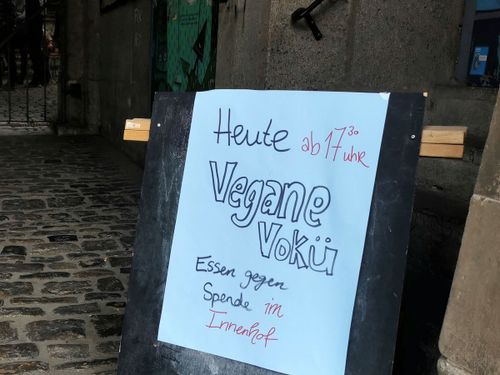 Heute ab 17³⁰ uhr
Vegane
Vokü
Essen gegen
Spende im
Innenhof